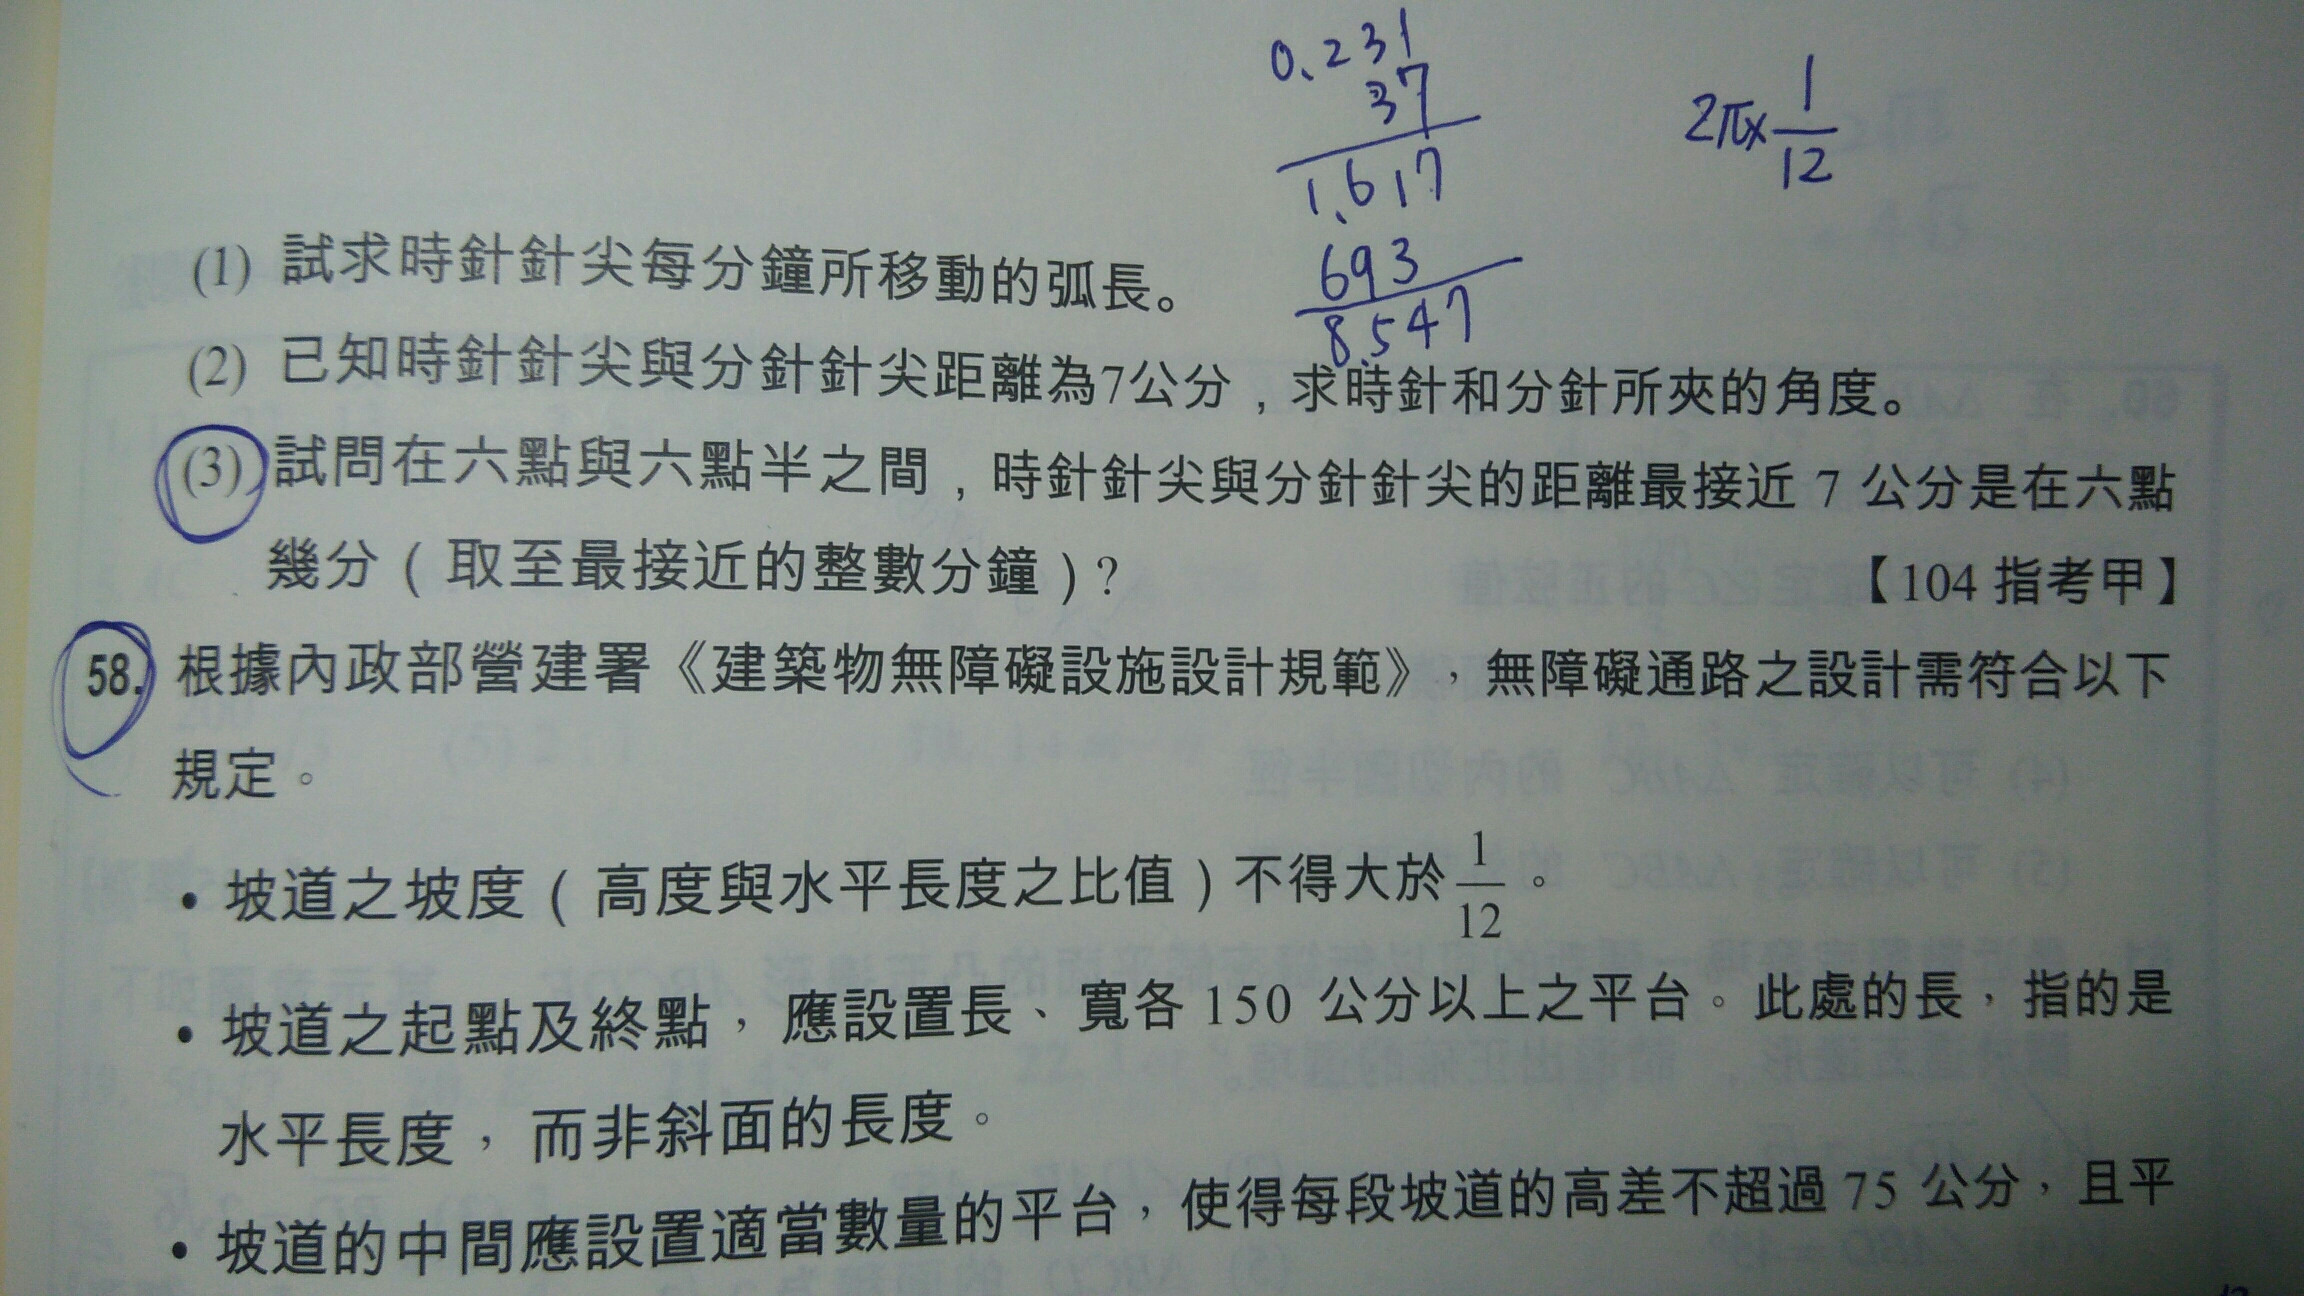 0.231
37
1.617
693
8.547
2π×1/12
(1) 試求時針針尖每分鐘所移動的弧長。
(2) 已知時針針尖與分針針尖距離為7公分，求時針和分針所夾的角度。
(3) 試問在六點與六點半之間，時針針尖與分針針尖的距離最接近 7 公分是在六點
幾分（取至最接近的整數分鐘）？ 【104 指考甲】
58. 根據內政部營建署《建築物無障礙設施設計規範》，無障礙通路之設計需符合以下
規定。
• 坡道之坡度（高度與水平長度之比值）不得大於 1/12。
• 坡道之起點及終點，應設置長、寬各 150 公分以上之平台。此處的長，指的是
水平長度，而非斜面的長度。
• 坡道的中間應設置適當數量的平台，使得每段坡道的高差不超過 75 公分，且平